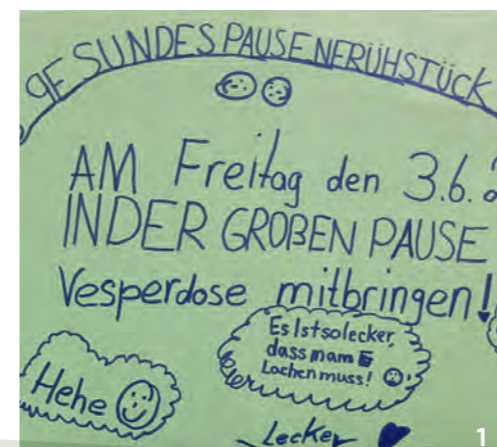 GESUNDES PAUSENFRÜHSTÜCK
AM Freitag den 3.6.
IN DER GROßEN PAUSE
Vesperdose mitbringen!
Es Ist so lecker,
dass mam
Lachen muss!
Hehe
Lecker
1